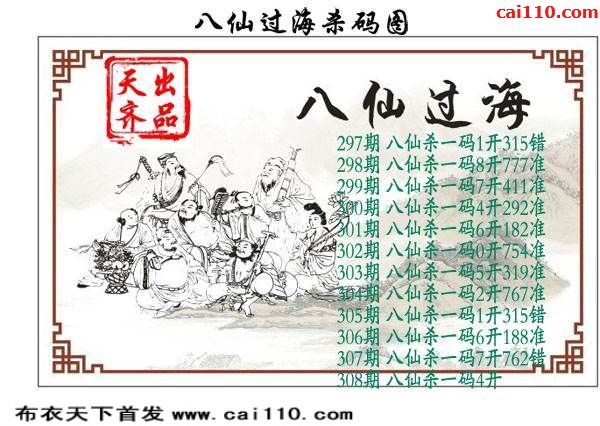 cai110.com
八仙过海杀码图
天齐出品
八仙过海
297期 八仙杀一码1开315错
298期 八仙杀一码8开777准
299期 八仙杀一码7开411准
300期 八仙杀一码4开292准
301期 八仙杀一码6开182准
302期 八仙杀一码0开754准
303期 八仙杀一码5开319准
304期 八仙杀一码2开767准
305期 八仙杀一码1开315错
306期 八仙杀一码6开188准
307期 八仙杀一码7开762错
308期 八仙杀一码4开
布衣天下首发 www.cai110.com